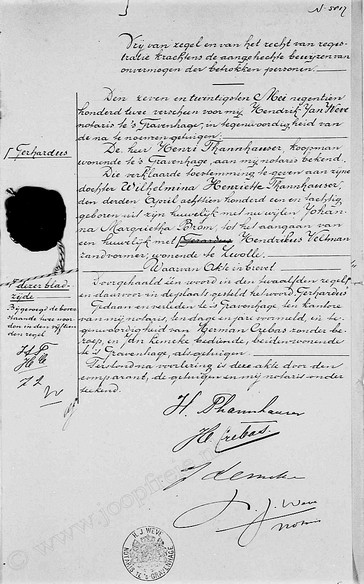 N. 5017
Vrij van zegel en van het recht van regis-
tratie krachtens de aangehechte bewijzen van
onvermogen der betrokken personen.
Den zeven en twintigsten Mei negentien
honderd twee verscheen voor mij Hendrik Jan Weve
notaris te 's Gravenhage, in tegenwoordigheid van
de na te noemen getuigen:
De heer Henri Thannhauser, koopman
wonende te 's Gravenhage, aan mij notaris bekend.
Die verklaarde toestemming te geven aan zijne
dochter Wilhelmina Henriette Thannhauser,
den derden April achttienhonderd een en tachtig,
geboren uit zijn huwelijk met nu wijlen Johan-
na Margrietha Brom, tot het aangaan van
een huwelijk met Gerardus Hendrikus Veltman
zandvormer, wonende te Zwolle.
Waarvan Akte in brevet
Doorgehaald één woord in den twaalfden regel
en daarvoor in de plaats gesteld het woord Gerhardus
Gedaan en verleden te 's Gravenhage, ten kantore
van mij notaris, ten dage en jare voormeld, in te-
genwoordigheid van Herman Crebas zonder be-
roep, en Jan Lemcke bediende, beiden wonende
te 's Gravenhage, als getuigen.
Terstond na voorlezing is deze akte door den
comparant, de getuigen en mij notaris onder-
teekend.
Gerhardus
dezer blad-
zijde
Bijgevoegd de boven-
staande twee woor-
den in den vijftien-
den regel
H. T.
H. C.
J. L.
W
H. Thannhauser
H. Crebas.
J Lemcke
H. J. Weve
notaris
H. J. WEVE
NOTARIS TE 'S GRAVENHAGE